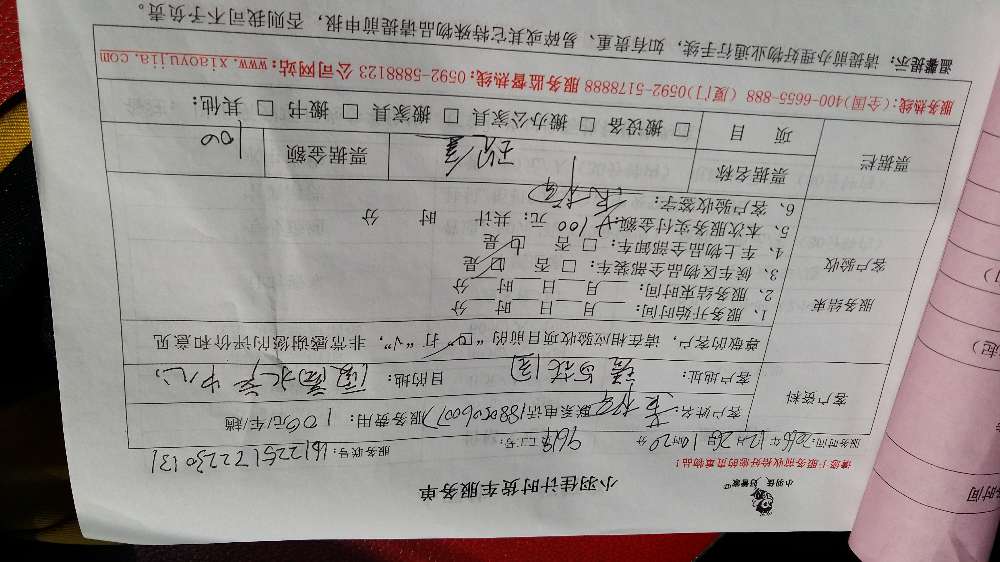 小羽佳 好管家
小羽佳计时货车服务单
请您上服务前收拾好您的贵重物品!
服务时间: 2016年12月26日 10时20分
工号: 9619
服务联号: 1612261722230131
客户资料
客户姓名:
联系电话
服务费用: 100元/车/趟
客户地址:
目的地:
尊敬的客户, 请在相应验收项目前的“口”打“√”, 非常感谢您的评价和意见
服务结束
客户验收
1、服务开始时间: 月 日 时 分
2、服务结束时间: 月 日 时 分
3、候车区物品全部装车: □ 否 □ 是
4、车上物品全部卸车: □ 否 □ 是
5、本次服务实付金额: 100 元; 共计 时 分
6、客户验收签字:
票据栏
票据名称
现金
票据金额
100
项 目
□ 搬设备 □ 搬办公家具 □ 搬家具 □ 搬书 □ 其他:
服务热线: (全国)400-6655-888 (厦门)0592-5178888 服务监督热线: 0592-5888123 公司网站: www.xiaoyujia.com
温馨提示: 请提前办理好物业通行手续, 如有贵重、易碎或其它特殊物品请提前申报, 否则我司不予负责。